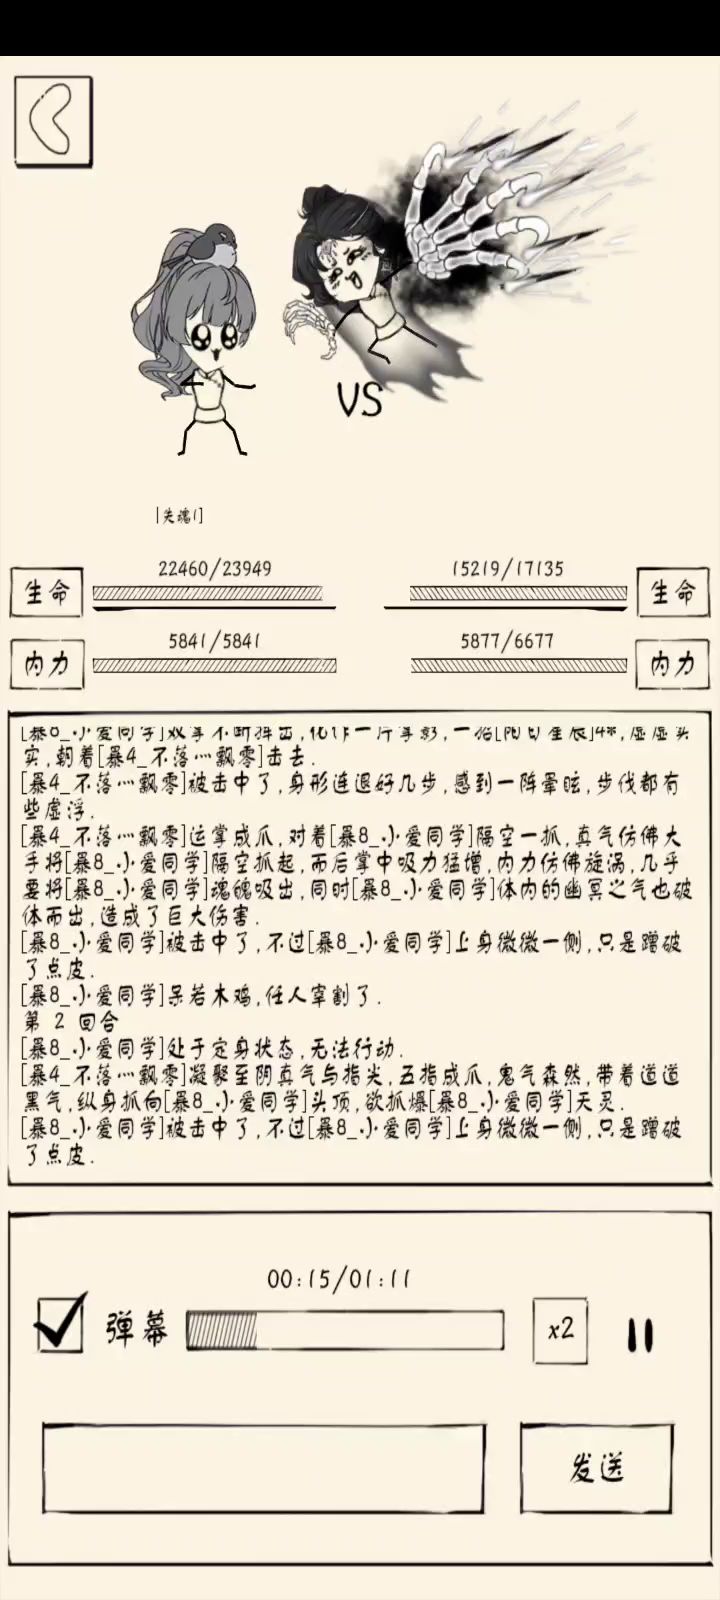 VS
[失魂1]
22460/23949
15219/17135
生命
生命
5841/5841
5877/6677
内力
内力
[暴8_小爱同学]双掌不断挥出,化作一片掌影,一招[阳日星辰]4*,虚虚实
实,朝着[暴4_不落灬飘零]击去.
[暴4_不落灬飘零]被击中了,身形连退好几步,感到一阵晕眩,步伐都有
些虚浮.
[暴4_不落灬飘零]运掌成爪,对着[暴8_小爱同学]隔空一抓,真气仿佛大
手将[暴8_小爱同学]隔空抓起,而后掌中吸力猛增,内力仿佛旋涡,几乎
要将[暴8_小爱同学]魂魄吸出,同时[暴8_小爱同学]体内的幽冥之气也破
体而出,造成了巨大伤害.
[暴8_小爱同学]被击中了,不过[暴8_小爱同学]上身微微一侧,只是蹭破
了点皮.
[暴8_小爱同学]呆若木鸡,任人宰割了.
第 2 回合
[暴8_小爱同学]处于定身状态,无法行动.
[暴4_不落灬飘零]凝聚至阴真气与指尖,五指成爪,鬼气森然,带着道道
黑气,纵身抓向[暴8_小爱同学]头顶,欲抓爆[暴8_小爱同学]天灵.
[暴8_小爱同学]被击中了,不过[暴8_小爱同学]上身微微一侧,只是蹭破
了点皮.
00:15/01:11
弹幕
x2
发送